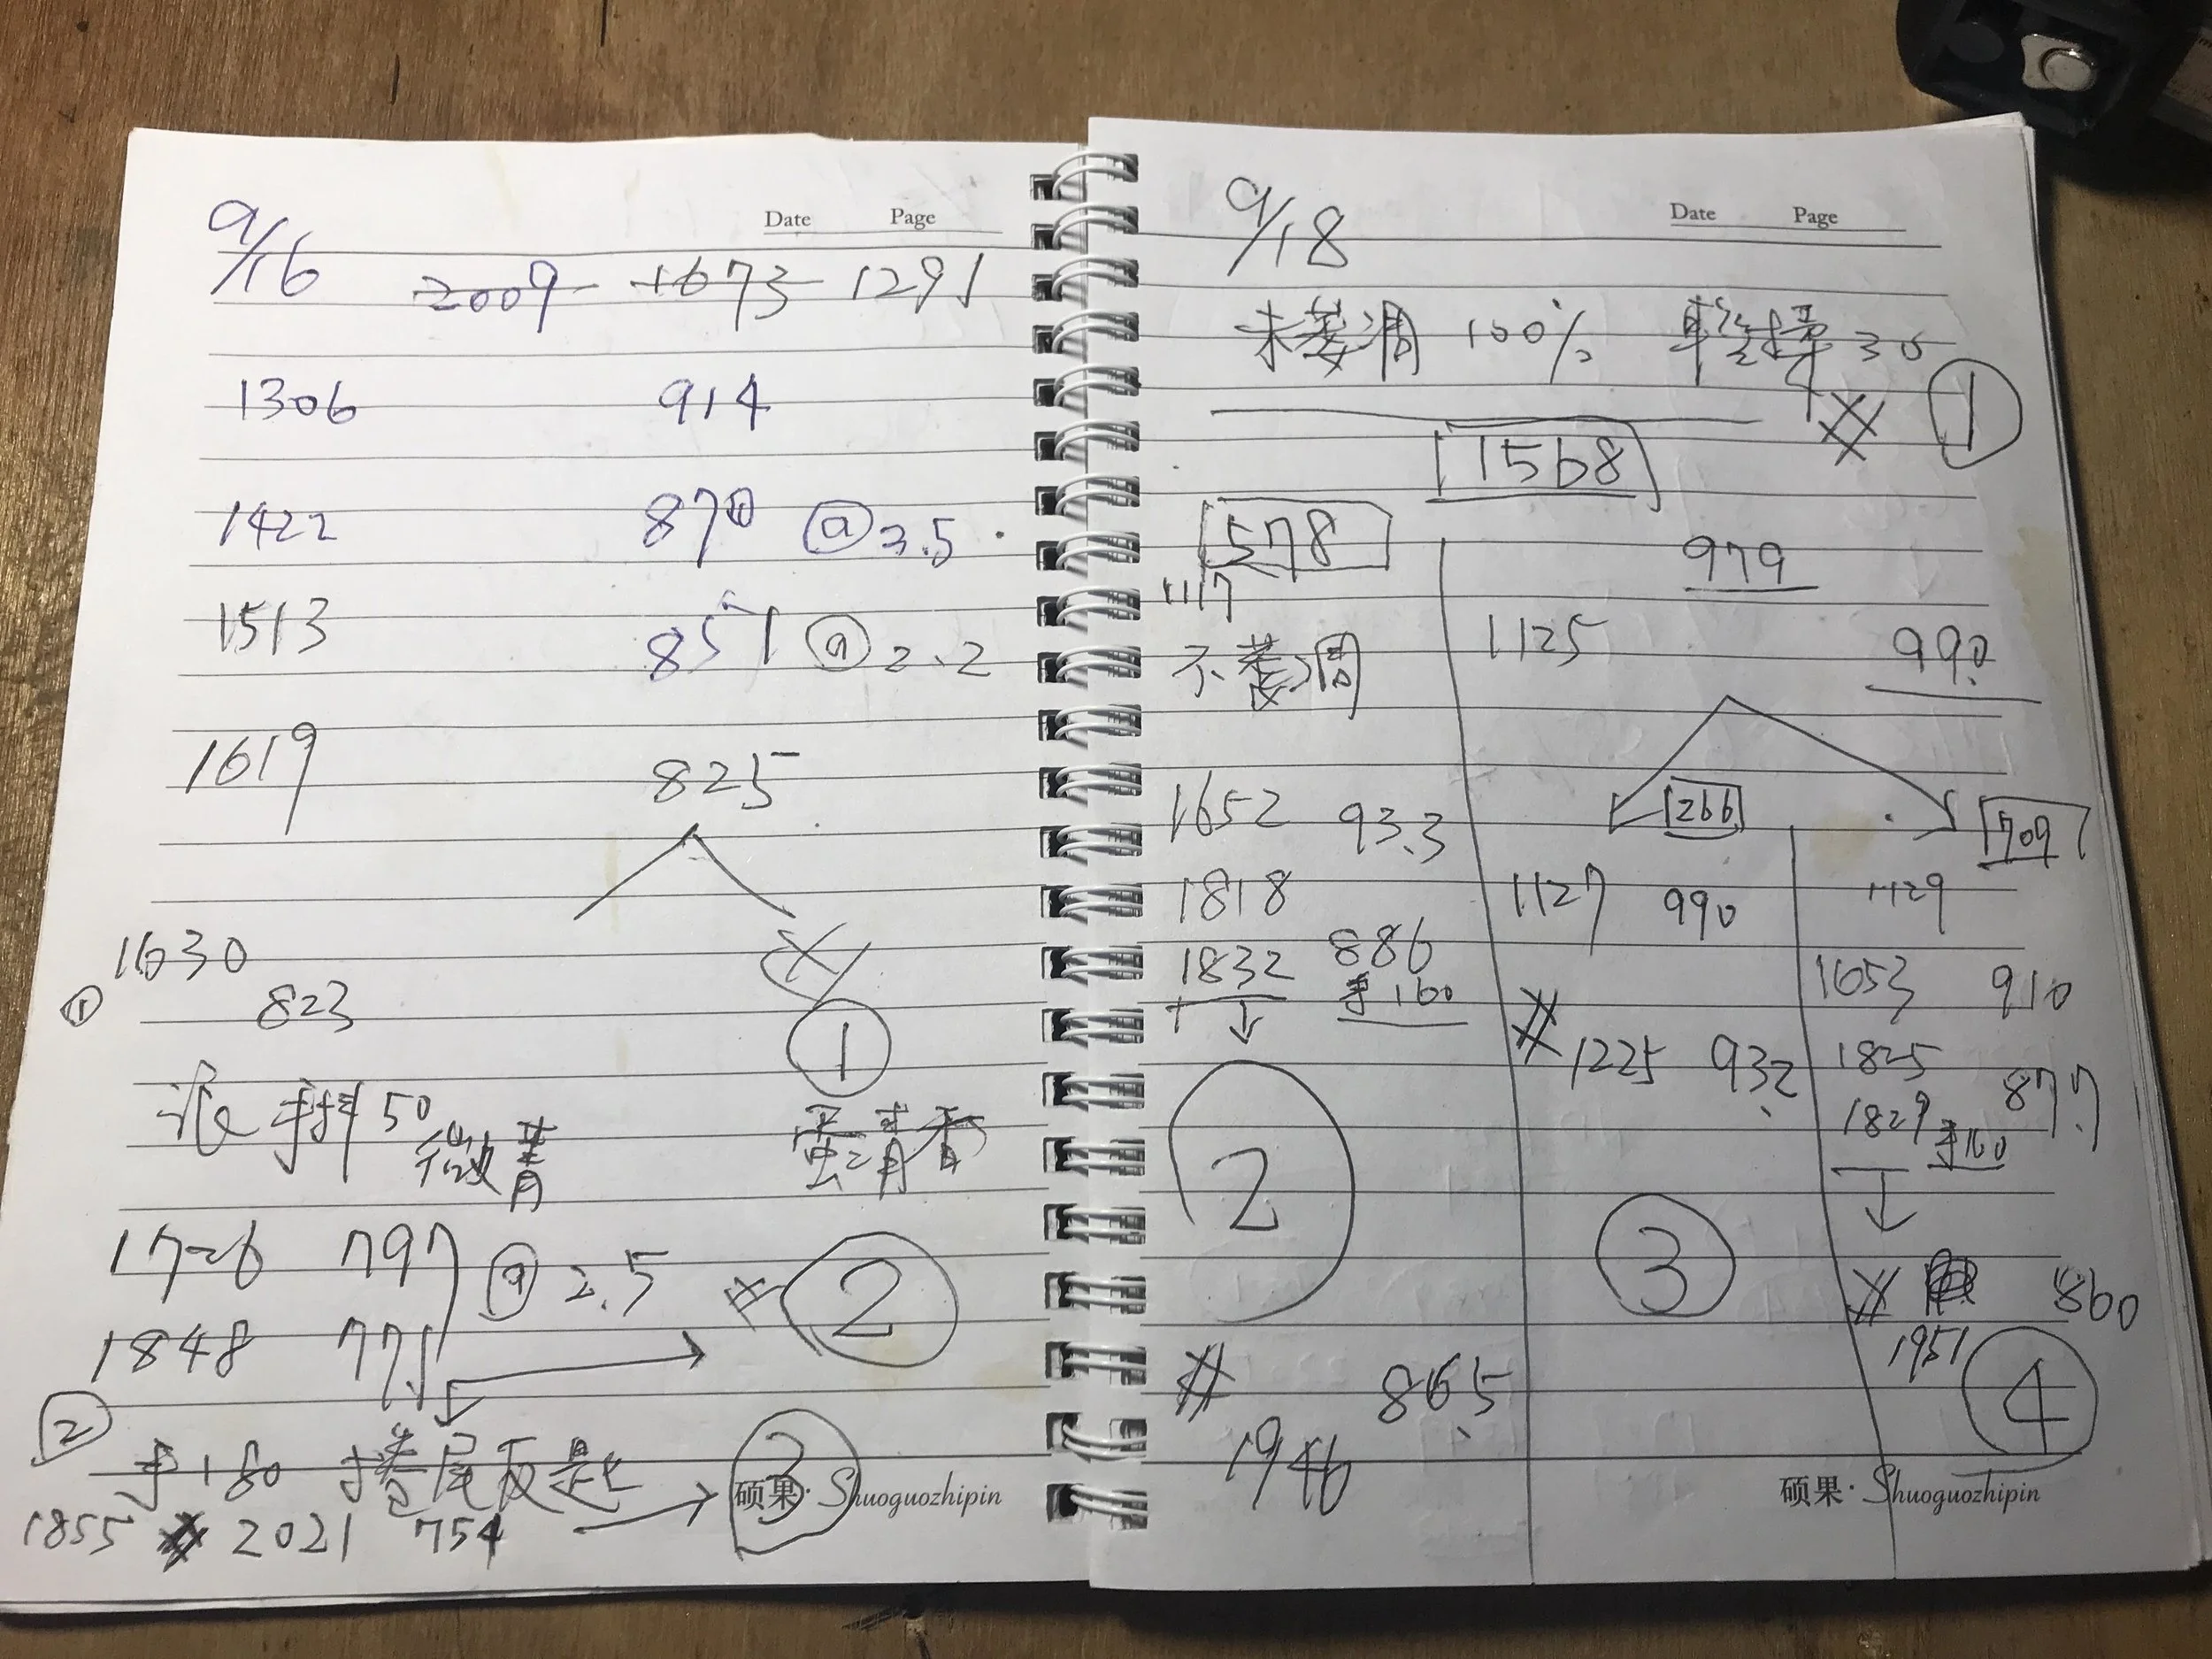 Date Page
9/16 2009 1673 1291
1306 914
1422 870 @ 3.5
1513 851 @ 2.2
1619 825
1630
① 823
①
手抖 50
微菁
蛋清香
1726 797 @ 2.5 # ②
1848 771
②
手180 捲尾反起 ③
硕果·Shuoguozhipin
1855 # 2021 754
Date Page
9/18
未萎凋 100% 30
# ①
1568
578 979
1117
不萎凋 1125 990
266 709
1652 93.3
1818 1127 990 1129
1832 886 1653 910
手160
# 1225 932 1825 877
1829 手160
②
③
# 860
1951
# 865 ④
1946
硕果·Shuoguozhipin